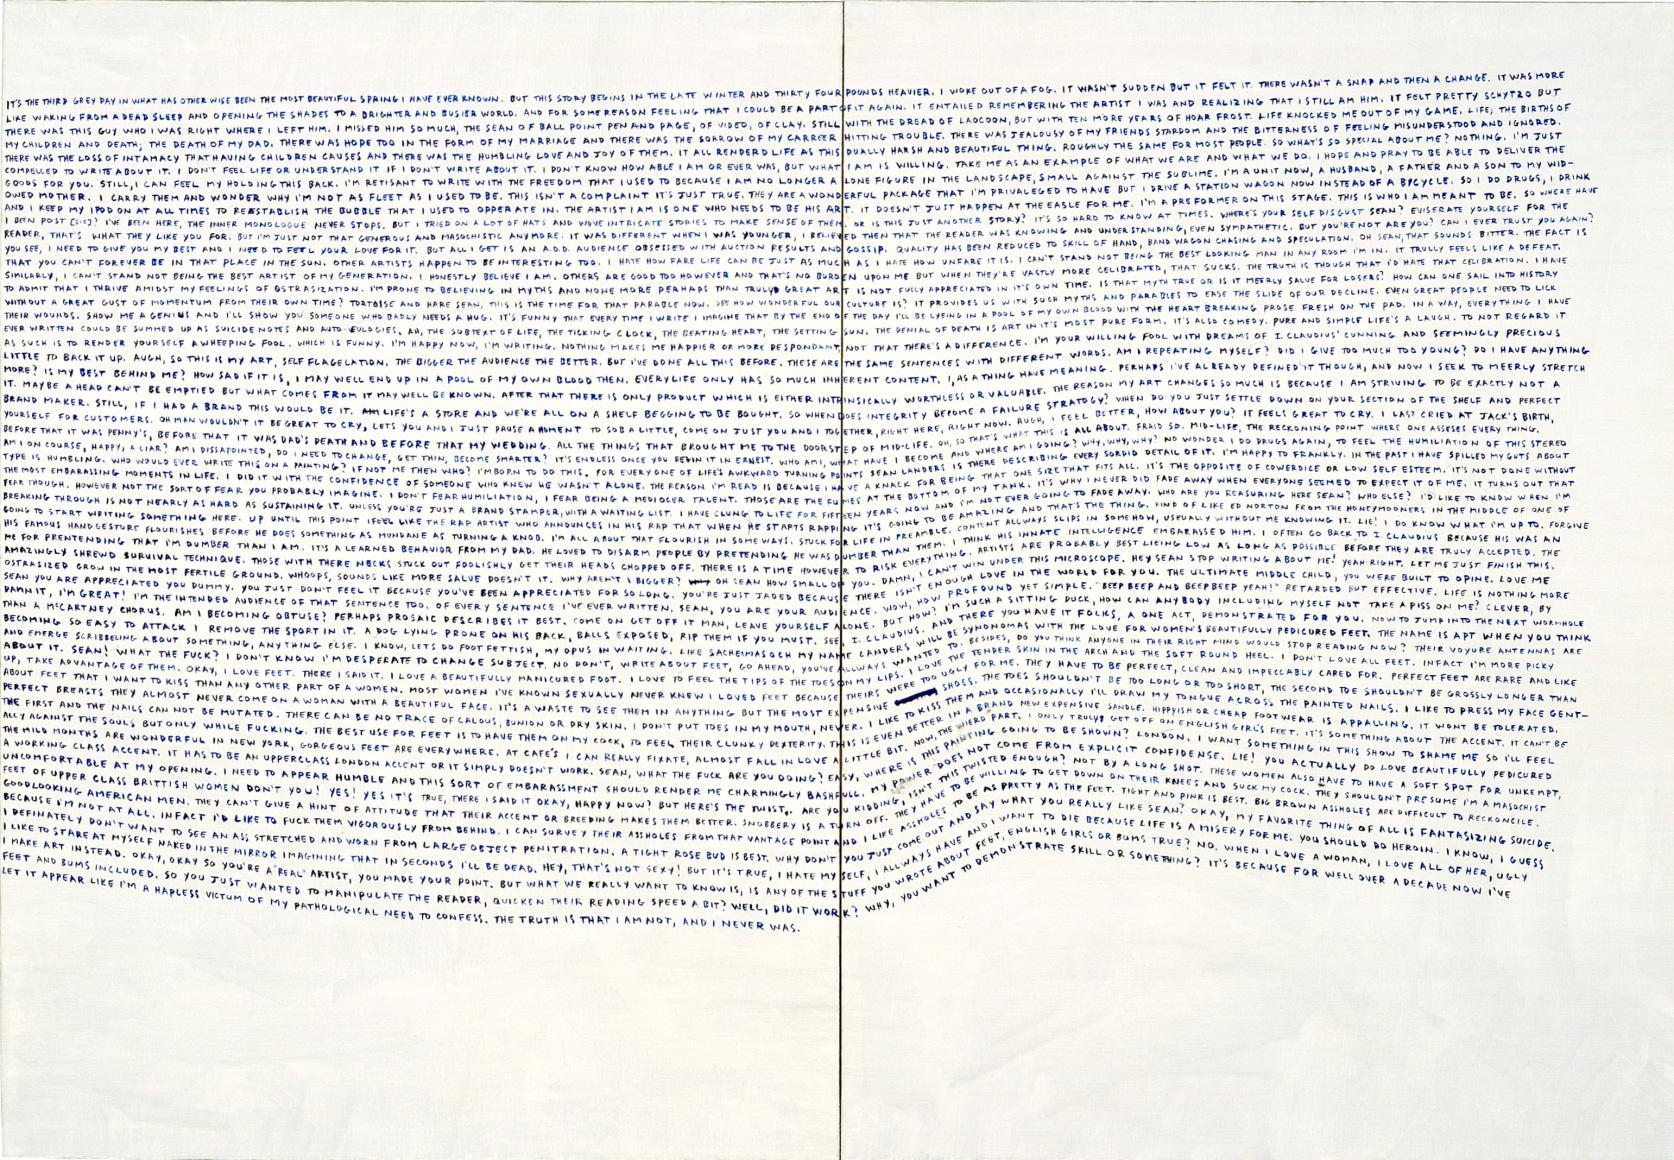 IT'S THE THIRD GREY DAY IN WHAT HAS OTHER WISE BEEN THE MOST BEAUTIFUL SPRING I HAVE EVER KNOWN. BUT THIS STORY BEGINS IN THE LATE WINTER AND THIRTY FOUR POUNDS HEAVIER. I WOKE OUT OF A FOG. IT WASN'T SUDDEN BUT IT FELT IT. THERE WASN'T A SNAP AND THEN A CHANGE. IT WAS MORE
LIKE WAKING FROM A DEAD SLEEP AND OPENING THE SHADES TO A BRIGHTER AND BUSIER WORLD. AND FOR SOME REASON FEELING THAT I COULD BE A PART OF IT AGAIN. IT ENTAILED REMEMBERING THE ARTIST I WAS AND REALIZING THAT I STILL AM HIM. IT FELT PRETTY SCHYTZO BUT
THERE WAS THIS GUY WHO I WAS RIGHT WHERE I LEFT HIM. I MISSED HIM SO MUCH, THE SEAN OF BALL POINT PEN AND PAGE, OF VIDEO, OF CLAY. STILL WITH THE DREAD OF LAOCOON, BUT WITH TEN MORE YEARS OF HOAR FROST. LIFE KNOCKED ME OUT OF MY GAME. LIFE; THE BIRTHS OF
MY CHILDREN AND DEATH; THE DEATH OF MY DAD. THERE WAS HOPE TOO IN THE FORM OF MY MARRIAGE AND THERE WAS THE SORROW OF MY CARREER HITTING TROUBLE. THERE WAS JEALOUSY OF MY FRIENDS STARDOM AND THE BITTERNESS OF FEELING MISUNDERSTOOD AND IGNORED.
THERE WAS THE LOSS OF INTAMACY THAT HAVING CHILDREN CAUSES AND THERE WAS THE HUMBLING LOVE AND JOY OF THEM. IT ALL RENDERD LIFE AS THIS DUALLY HARSH AND BEAUTIFUL THING. ROUGHLY THE SAME FOR MOST PEOPLE. SO WHAT'S SO SPECIAL ABOUT ME? NOTHING. I'M JUST
COMPELLED TO WRITE ABOUT IT. I DON'T FEEL LIFE OR UNDERSTAND IT IF I DON'T WRITE ABOUT IT. I DON'T KNOW HOW ABLE I AM OR EVER WAS, BUT WHAT I AM IS WILLING. TAKE ME AS AN EXAMPLE OF WHAT WE ARE AND WHAT WE DO. I HOPE AND PRAY TO BE ABLE TO DELIVER THE
GOODS FOR YOU. STILL, I CAN FEEL MY HOLDING THIS BACK. I'M RETISANT TO WRITE WITH THE FREEDOM THAT I USED TO BECAUSE I AM NO LONGER A LONE FIGURE IN THE LANDSCAPE, SMALL AGAINST THE SUBLIME. I'M A UNIT NOW, A HUSBAND, A FATHER AND A SON TO MY WID-
OWED MOTHER. I CARRY THEM AND WONDER WHY I'M NOT AS FLEET AS I USED TO BE. THIS ISN'T A COMPLAINT IT'S JUST TRUE. THEY ARE A WONDERFUL PACKAGE THAT I'M PRIVALEGED TO HAVE BUT I DRIVE A STATION WAGON NOW INSTEAD OF A BYCYCLE. SO I DO DRUGS, I DRINK
AND I KEEP MY IPOD ON AT ALL TIMES TO REESTABLISH THE BUBBLE THAT I USED TO OPPERATE IN. THE ARTIST I AM IS ONE WHO NEEDS TO BE HIS ART. IT DOESN'T JUST HAPPEN AT THE EASLE FOR ME. I'M A PREFORMER ON THIS STAGE. THIS IS WHO I AM MEANT TO BE. SO WHERE HAVE
I BEEN POST [SIC]? I'VE BEEN HERE, THE INNER MONOLOGUE NEVER STOPS. BUT I TRIED ON A LOT OF HATS AND WOVE INTRICATE STORIES TO MAKE SENSE OF THEM. OR IS THIS JUST ANOTHER STORY? IT'S SO HARD TO KNOW AT TIMES. WHERE'S YOUR SELF DISGUST SEAN? EVISERATE YOURSELF FOR THE
READER, THAT'S WHAT THEY LIKE YOU FOR. BUT I'M JUST NOT THAT GENEROUS AND MASOCHISTIC ANYMORE. IT WAS DIFFERENT WHEN I WAS YOUNGER, I BELIEVED THEN THAT THE READER WAS KNOWING AND UNDERSTANDING, EVEN SYMPATHETIC. BUT YOU'RE NOT ARE YOU? CAN I EVER TRUST YOU AGAIN?
YOU SEE, I NEED TO GIVE YOU MY BEST AND I NEED TO FEEL YOUR LOVE FOR IT. BUT ALL I GET IS AN A.D.D. AUDIENCE OBSESSED WITH AUCTION RESULTS AND GOSSIP. QUALITY HAS BEEN REDUCED TO SKILL OF HAND, BAND WAGON CHASING AND SPECULATION. OH SEAN, THAT SOUNDS BITTER. THE FACT IS
THAT YOU CAN'T FOREVER BE IN THAT PLACE IN THE SUN. OTHER ARTISTS HAPPEN TO BE INTERESTING TOO. I HATE HOW FARE LIFE CAN BE JUST AS MUCH AS I HATE HOW UNFARE IT IS. I CAN'T STAND NOT BEING THE BEST LOOKING MAN IN ANY ROOM I'M IN. IT TRULLY FEELS LIKE A DEFEAT.
SIMILARLY, I CAN'T STAND NOT BEING THE BEST ARTIST OF MY GENERATION. I HONESTLY BELIEVE I AM. OTHERS ARE GOOD TOO HOWEVER AND THAT'S NO BURDEN UPON ME BUT WHEN THEY'RE VASTLY MORE CELIBRATED, THAT SUCKS. THE TRUTH IS THOUGH THAT I'D HATE THAT CELIBRATION. I HAVE
TO ADMIT THAT I THRIVE AMIDST MY FEELINGS OF OSTRASIZATION. I'M PRONE TO BELIEVING IN MYTHS AND NONE MORE PERHAPS THAN TRULY GREAT ART IS NOT FULLY APPRECIATED IN IT'S OWN TIME. IS THAT MYTH TRUE OR IS IT MEERLY SALVE FOR LOSERS? HOW CAN ONE SAIL INTO HISTORY
WITHOUT A GREAT GUST OF MOMENTUM FROM THEIR OWN TIME? TORTOISE AND HARE SEAN, THIS IS THE TIME FOR THAT PARABLE NOW. SEE HOW WONDERFUL OUR CULTURE IS? IT PROVIDES US WITH SUCH MYTHS AND PARABLES TO EASE THE SLIDE OF OUR DECLINE. EVEN GREAT PEOPLE NEED TO LICK
THEIR WOUNDS. SHOW ME A GENIUS AND I'LL SHOW YOU SOMEONE WHO BADLY NEEDS A HUG. IT'S FUNNY THAT EVERY TIME I WRITE I IMAGINE THAT BY THE END OF THE DAY I'LL BE LYEING IN A POOL OF MY OWN BLOOD WITH THE HEART BREAKING PROSE FRESH ON THE PAD. IN A WAY, EVERYTHING I HAVE
EVER WRITTEN COULD BE SUMMED UP AS SUICIDE NOTES AND AUTO-EULOGIES. AH, THE SUBTEXT OF LIFE, THE TICKING CLOCK, THE BEATING HEART, THE SETTING SUN. THE DENIAL OF DEATH IS ART IN IT'S MOST PURE FORM. IT'S ALSO COMEDY. PURE AND SIMPLE LIFE'S A LAUGH. TO NOT REGARD IT
AS SUCH IS TO RENDER YOURSELF A WHEEPING FOOL. WHICH IS FUNNY. I'M HAPPY NOW, I'M WRITING. NOTHING MAKES ME HAPPIER OR MORE DESPONDANT, NOT THAT THERE'S A DIFFERENCE. I'M YOUR WILLING FOOL WITH DREAMS OF I. CLAUDIUS' CUNNING AND SEEMINGLY PRECIOUS
LITTLE TO BACK IT UP. AUGH, SO THIS IS MY ART, SELF FLAGELATION. THE BIGGER THE AUDIENCE THE BETTER. BUT I'VE DONE ALL THIS BEFORE. THESE ARE THE SAME SENTENCES WITH DIFFERENT WORDS. AM I REPEATING MYSELF? DID I GIVE TOO MUCH TOO YOUNG? DO I HAVE ANYTHING
MORE? IS MY BEST BEHIND ME? HOW SAD IF IT IS, I MAY WELL END UP IN A POOL OF MY OWN BLOOD THEN. EVERYLIFE ONLY HAS SO MUCH INHERENT CONTENT. I, AS A THING HAVE MEANING. PERHAPS I'VE ALREADY DEFINED IT THOUGH, AND NOW I SEEK TO MEERLY STRETCH
IT. MAYBE A HEAD CAN'T BE EMPTIED BUT WHAT COMES FROM IT MAY WELL BE KNOWN. AFTER THAT THERE IS ONLY PRODUCT WHICH IS EITHER INTRINSICALLY WORTHLESS OR VALUABLE. THE REASON MY ART CHANGES SO MUCH IS BECAUSE I AM STRIVING TO BE EXACTLY NOT A
BRAND MAKER. STILL, IF I HAD A BRAND THIS WOULD BE IT. LIFE'S A STORE AND WE'RE ALL ON A SHELF BEGGING TO BE BOUGHT. SO WHEN DOES INTEGRITY BECOME A FAILURE STRATOGY? WHEN DO YOU JUST SETTLE DOWN ON YOUR SECTION OF THE SHELF AND PERFECT
YOURSELF FOR CUSTOMERS. OH MAN WOULDN'T IT BE GREAT TO CRY, LETS YOU AND I JUST PAUSE A MOMENT TO SOB A LITTLE, COME ON JUST YOU AND I TOGETHER, RIGHT HERE, RIGHT NOW. AUGH, I FEEL BETTER, HOW ABOUT YOU? IT FEELS GREAT TO CRY. I LAST CRIED AT JACK'S BIRTH,
BEFORE THAT IT WAS PENNY'S, BEFORE THAT IT WAS DAD'S DEATH AND BEFORE THAT MY WEDDING. ALL THE THINGS THAT BROUGHT ME TO THE DOORSTEP OF MID-LIFE. OH, SO THAT'S WHAT THIS IS ALL ABOUT. FRAID SO. MID-LIFE, THE RECKONING POINT WHERE ONE ASSESES EVERY THING.
AM I ON COURSE, HAPPY, A LIAR? AM I DISSAPOINTED, DO I NEED TO CHANGE, GET THIN, BECOME SMARTER? IT'S ENDLESS ONCE YOU BEGIN IT IN ERNEST. WHO AM I, WHAT HAVE I BECOME AND WHERE AM I GOING? WHY, WHY, WHY? NO WONDER I DO DRUGS AGAIN, TO FEEL THE HUMILIATION OF THIS STEREO
TYPE IS HUMBLING. WHO WOULD EVER WRITE THIS ON A PAINTING? IF NOT ME THEN WHO? I'M BORN TO DO THIS. FOR EVERY ONE OF LIFE'S AWKWARD TURNING POINTS SEAN LANDERS IS THERE DESCRIBING EVERY SORDID DETAIL OF IT. I'M HAPPY TO FRANKLY. IN THE PAST I HAVE SPILLED MY GUTS ABOUT
THE MOST EMBARASSING MOMENTS IN LIFE. I DID IT WITH THE CONFIDENCE OF SOMEONE WHO KNEW HE WASN'T ALONE. THE REASON I'M READ IS BECAUSE I HAVE A KNACK FOR BEING THAT ONE SIZE THAT FITS ALL. IT'S THE OPPOSITE OF COWERDICE OR LOW SELF ESTEEM. IT'S NOT DONE WITHOUT
FEAR THOUGH. HOWEVER NOT THE SORT OF FEAR YOU PROBABLY IMAGINE. I DON'T FEAR HUMILIATION, I FEAR BEING A MEDIOCER TALENT. THOSE ARE THE FUMES AT THE BOTTOM OF MY TANK. IT'S WHY I NEVER DID FADE AWAY WHEN EVERYONE SEEMED TO EXPECT IT OF ME. IT TURNS OUT THAT
BREAKING THROUGH IS NOT NEARLY AS HARD AS SUSTAINING IT. UNLESS YOU'RE JUST A BRAND STAMPER, WITH A WAITING LIST. I HAVE CLUNG TO LIFE FOR FIFTEEN YEARS NOW AND I'M NOT EVER GOING TO FADE AWAY. WHO ARE YOU REASURING HERE SEAN? WHO ELSE? I'D LIKE TO KNOW WHEN I'M
GOING TO START WRITING SOMETHING HERE. UP UNTIL THIS POINT I FEEL LIKE THE RAP ARTIST WHO ANNOUNCES IN HIS RAP THAT WHEN HE STARTS RAPPING IT'S GOING TO BE AMAZING AND THAT'S THE THING. KIND OF LIKE ED NORTON FROM THE HONEYMOONERS IN THE MIDDLE OF ONE OF
HIS FAMOUS HANDGESTURE FLOURISHES BEFORE HE DOES SOMETHING AS MUNDANE AS TURNING A KNOB. I'M ALL ABOUT THAT FLOURISH IN SOME WAYS. STUCK FOR A LIFE IN PREAMBLE. CONTENT ALLWAYS SLIPS IN SOMEHOW, USEUALLY WITHOUT ME KNOWING IT. LIE! I DO KNOW WHAT I'M UP TO. FORGIVE
ME FOR PRENTENDING THAT I'M DUMBER THAN I AM. IT'S A LEARNED BEHAVIOR FROM MY DAD. HE LOVED TO DISARM PEOPLE BY PRETENDING HE WAS DUMBER THAN THEM. I THINK HIS INNATE INTELLIGENCE EMBARASSED HIM. I OFTEN GO BACK TO I. CLAUDIUS BECAUSE HIS WAS AN
AMAZINGLY SHREWD SURVIVAL TECHNIQUE. THOSE WITH THERE NECKS STUCK OUT FOOLISHLY GET THEIR HEADS CHOPPED OFF. THERE IS A TIME HOWEVER TO RISK EVERYTHING. ARTISTS ARE PROBABLY BEST LIEING LOW AS LONG AS POSSIBLE BEFORE THEY ARE TRULY ACCEPTED. THE
OSTRASIZED GROW IN THE MOST FERTILE GROUND. WHOOPS, SOUNDS LIKE MORE SALVE DOESN'T IT. WHY AREN'T I BIGGER? OH SEAN HOW SMALL OF YOU. DAMN, I CAN'T WIN UNDER THIS MICROSCOPE. HEY SEAN STOP WRITING ABOUT ME! YEAH RIGHT. LET ME JUST FINISH THIS.
SEAN YOU ARE APPRECIATED YOU DUMMY. YOU JUST DON'T FEEL IT BECAUSE YOU'VE BEEN APPRECIATED FOR SO LONG. YOU'RE JUST JADED BECAUSE THERE ISN'T ENOUGH LOVE IN THE WORLD FOR YOU. THE ULTIMATE MIDDLE CHILD, YOU WERE BUILT TO OPINE. LOVE ME
DAMN IT, I'M GREAT! I'M THE INTENDED AUDIENCE OF THAT SENTENCE TOO. OF EVERY SENTENCE I'VE EVER WRITTEN. SEAN, YOU ARE YOUR AUDIENCE. WOW, HOW PROFOUND YET SIMPLE. "BEEP BEEP AND BEEP BEEP YEAH!" RETARDED BUT EFFECTIVE. LIFE IS NOTHING MORE
THAN A McCARTNEY CHORUS. AM I BECOMING OBTUSE? PERHAPS PROSAIC DESCRIBES IT BEST. COME ON GET OFF IT MAN, LEAVE YOURSELF ALONE. BUT HOW? I'M SUCH A SITTING DUCK, HOW CAN ANYBODY INCLUDING MYSELF NOT TAKE A PISS ON ME? CLEVER, BY
BECOMING SO EASY TO ATTACK I REMOVE THE SPORT IN IT. A DOG LYING PRONE ON HIS BACK, BALLS EXPOSED, RIP THEM IF YOU MUST. SEE, I. CLAUDIUS. AND THERE YOU HAVE IT FOLKS, A ONE ACT, DEMONSTRATED FOR YOU. NOW TO JUMP INTO THE NEXT WORMHOLE
AND EMERGE SCRIBBELING ABOUT SOMETHING, ANYTHING ELSE. I KNOW, LETS DO FOOT FETTISH, MY OPUS IN WAITING. LIKE SACHEIMASOCH MY NAME LANDERS WILL BE SYNONOMAS WITH THE LOVE FOR WOMEN'S BEAUTIFULLY PEDICURED FEET. THE NAME IS APT WHEN YOU THINK
ABOUT IT. SEAN! WHAT THE FUCK? I DON'T KNOW I'M DESPERATE TO CHANGE SUBJECT. NO DON'T, WRITE ABOUT FEET, GO AHEAD, YOU'VE ALLWAYS WANTED TO. BESIDES, DO YOU THINK ANYONE IN THEIR RIGHT MIND WOULD STOP READING NOW? THEIR VOYURE ANTENNAS ARE
UP, TAKE ADVANTAGE OF THEM. OKAY, I LOVE FEET. THERE I SAID IT. I LOVE A BEAUTIFULLY MANICURED FOOT. I LOVE TO FEEL THE TIPS OF THE TOES ON MY LIPS. I LOVE THE TENDER SKIN IN THE ARCH AND THE SOFT ROUND HEEL. I DON'T LOVE ALL FEET. INFACT I'M MORE PICKY
ABOUT FEET THAT I WANT TO KISS THAN ANY OTHER PART OF A WOMEN. MOST WOMEN I'VE KNOWN SEXUALLY NEVER KNEW I LOVED FEET BECAUSE THEIRS WERE TOO UGLY FOR ME. THEY HAVE TO BE PERFECT, CLEAN AND IMPECCABLY CARED FOR. PERFECT FEET ARE RARE AND LIKE
PERFECT BREASTS THEY ALMOST NEVER COME ON A WOMAN WITH A BEAUTIFUL FACE. IT'S A WASTE TO SEE THEM IN ANYTHING BUT THE MOST EXPENSIVE SHOES. THE TOES SHOULDN'T BE TOO LONG OR TOO SHORT, THE SECOND TOE SHOULDN'T BE GROSSLY LONGER THAN
THE FIRST AND THE NAILS CAN NOT BE MUTATED. THERE CAN BE NO TRACE OF CALOUS, BUNION OR DRY SKIN. I DON'T PUT TOES IN MY MOUTH, NEVER. I LIKE TO KISS THEM AND OCCASIONALLY I'LL DRAW MY TONGUE ACROSS THE PAINTED NAILS. I LIKE TO PRESS MY FACE GENT-
ALLY AGAINST THE SOULS BUT ONLY WHILE FUCKING. THE BEST USE FOR FEET IS TO HAVE THEM ON MY COCK, TO FEEL THEIR CLUNKY DEXTERITY. THIS IS EVEN BETTER IN A BRAND NEW EXPENSIVE SANDLE. HIPPYISH OR CHEAP FOOT WEAR IS APPALLING. IT WONT BE TOLERATED.
THE MILD MONTHS ARE WONDERFUL IN NEW YORK, GORGEOUS FEET ARE EVERYWHERE. AT CAFE'S I CAN REALLY FIXATE, ALMOST FALL IN LOVE A LITTLE BIT. NOW, THE WIERD PART. I ONLY TRULY GET OFF ON ENGLISH GIRL'S FEET. IT'S SOMETHING ABOUT THE ACCENT. IT CAN'T BE
A WORKING CLASS ACCENT. IT HAS TO BE AN UPPERCLASS LONDON ACCENT OR IT SIMPLY DOESN'T WORK. SEAN, WHAT THE FUCK ARE YOU DOING? EASY, WHERE IS THIS PAINTING GOING TO BE SHOWN? LONDON. I WANT SOMETHING IN THIS SHOW TO SHAME ME SO I'LL FEEL
UNCOMFORTABLE AT MY OPENING. I NEED TO APPEAR HUMBLE AND THIS SORT OF EMBARASSMENT SHOULD RENDER ME CHARMINGLY BASHFULL. MY POWER DOES NOT COME FROM EXPLICIT CONFIDENSE. LIE! YOU ACTUALLY DO LOVE BEAUTIFULLY PEDICURED
FEET OF UPPER CLASS BRITTISH WOMEN DON'T YOU! YES! YES IT'S TRUE, THERE I SAID IT OKAY, HAPPY NOW? BUT HERE'S THE TWIST. ARE YOU KIDDING, ISN'T THIS TWISTED ENOUGH? NOT BY A LONG SHOT. THESE WOMEN ALSO HAVE TO HAVE A SOFT SPOT FOR UNKEMPT,
GOODLOOKING AMERICAN MEN. THEY CAN'T GIVE A HINT OF ATTITUDE THAT THEIR ACCENT OR BREEDING MAKES THEM BETTER. SNOBBERY IS A TURN OFF. THEY HAVE TO BE WILLING TO GET DOWN ON THEIR KNEES AND SUCK MY COCK. THEY SHOULDN'T PRESUME I'M A MASOCHIST
BECAUSE I'M NOT AT ALL. INFACT I'D LIKE TO FUCK THEM VIGOROUSLY FROM BEHIND. I CAN SURVEY THEIR ASSHOLES FROM THAT VANTAGE POINT AND I LIKE ASSHOLES TO BE AS PRETTY AS THE FEET. TIGHT AND PINK IS BEST. BIG BROWN ASSHOLES ARE DIFFICULT TO RECKONCILE.
I DEFINATELY DON'T WANT TO SEE AN ASS STRETCHED AND WORN FROM LARGE OBJECT PENITRATION. A TIGHT ROSE BUD IS BEST. WHY DON'T YOU JUST COME OUT AND SAY WHAT YOU REALLY LIKE SEAN? OKAY, MY FAVORITE THING OF ALL IS FANTASIZING SUICIDE.
I LIKE TO STARE AT MYSELF NAKED IN THE MIRROR IMAGINING THAT IN SECONDS I'LL BE DEAD. HEY, THAT'S NOT SEXY! BUT IT'S TRUE, I HATE MYSELF, I ALLWAYS HAVE AND I WANT TO DIE BECAUSE LIFE IS A MISERY FOR ME. YOU SHOULD DO HEROIN. I KNOW, I GUESS
I MAKE ART INSTEAD. OKAY, OKAY SO YOU'RE A "REAL" ARTIST, YOU MADE YOUR POINT. BUT WHAT WE REALLY WANT TO KNOW IS, IS ANY OF THE STUFF YOU WROTE ABOUT FEET, ENGLISH GIRLS OR BUMS TRUE? NO. WHEN I LOVE A WOMAN, I LOVE ALL OF HER, UGLY
FEET AND BUMS INCLUDED. SO YOU JUST WANTED TO MANIPULATE THE READER, QUICKEN THEIR READING SPEED A BIT? WELL, DID IT WORK? WHY, YOU WANT TO DEMONSTRATE SKILL OR SOMETHING? IT'S BECAUSE FOR WELL OVER A DECADE NOW I'VE
LET IT APPEAR LIKE I'M A HAPLESS VICTUM OF MY PATHOLOGICAL NEED TO CONFESS. THE TRUTH IS THAT I AM NOT, AND I NEVER WAS.